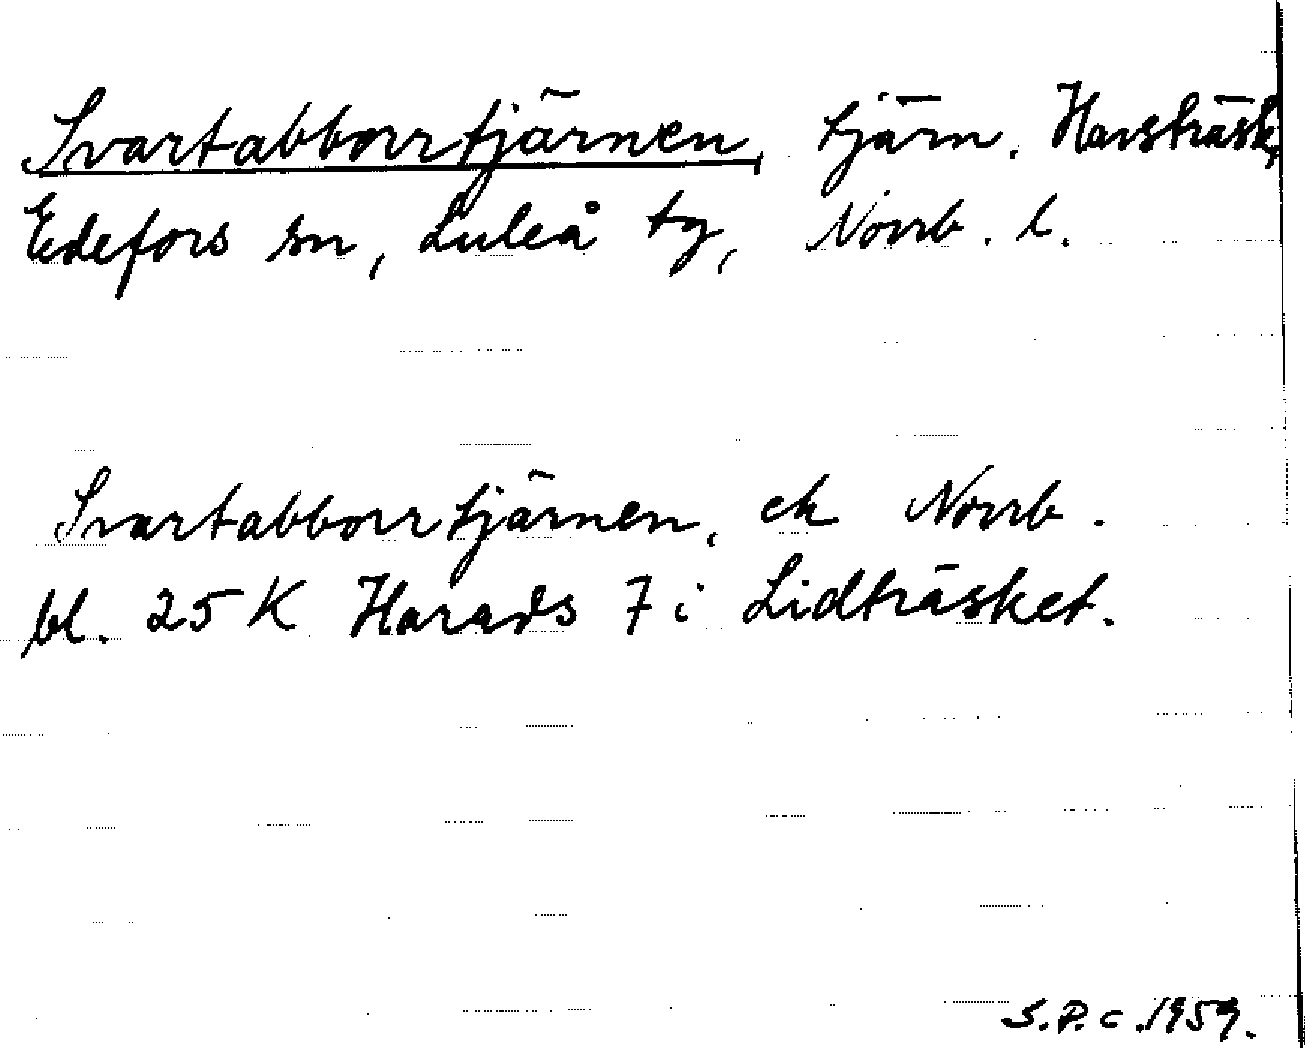 Svartabborrtjärnen, tjärn. Havsträsk,
Edefors sn, Luleå tg, Norrb. l.
Svartabborrtjärnen, ek Norrb.
bl. 25 K Harads 7 i Lidträsket.
S.P.c.1959.